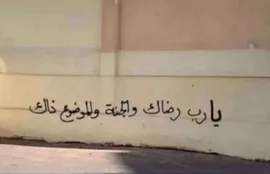 يارب رضاك والجنة والموضوع ذاك